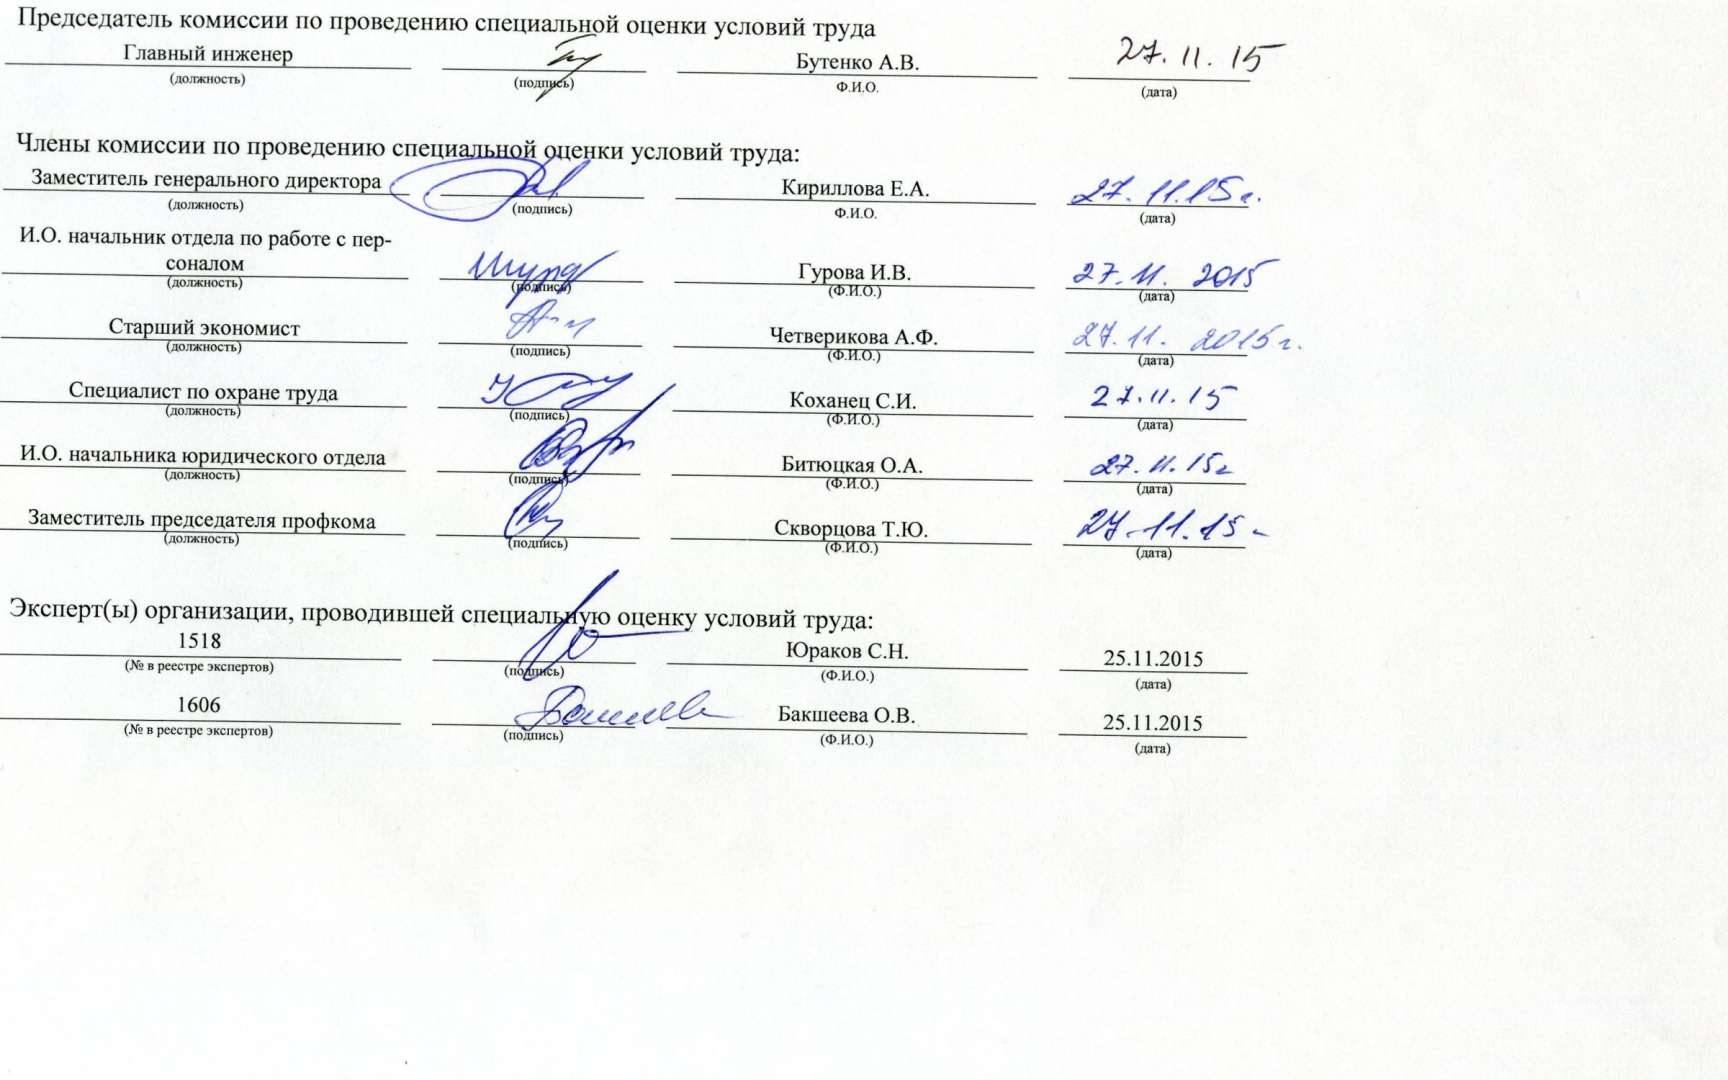 Председатель комиссии по проведению специальной оценки условий труда
Главный инженер Бутенко А.В. 27.11.15
(должность) (подпись) Ф.И.О. (дата)
Члены комиссии по проведению специальной оценки условий труда:
Заместитель генерального директора Кириллова Е.А. 27.11.15г.
(должность) (подпись) Ф.И.О. (дата)
И.О. начальник отдела по работе с пер-
соналом Гурова И.В. 27.11. 2015
(должность) (подпись) (Ф.И.О.) (дата)
Старший экономист Четверикова А.Ф. 27.11. 2015г.
(должность) (подпись) (Ф.И.О.) (дата)
Специалист по охране труда Коханец С.И. 27.11.15
(должность) (подпись) (Ф.И.О.) (дата)
И.О. начальника юридического отдела Битюцкая О.А. 27.11.15г
(должность) (подпись) (Ф.И.О.) (дата)
Заместитель председателя профкома Скворцова Т.Ю. 27.11.15г
(должность) (подпись) (Ф.И.О.) (дата)
Эксперт(ы) организации, проводившей специальную оценку условий труда:
1518 Юраков С.Н. 25.11.2015
(№ в реестре экспертов) (подпись) (Ф.И.О.) (дата)
1606 Бакшеева О.В. 25.11.2015
(№ в реестре экспертов) (подпись) (Ф.И.О.) (дата)